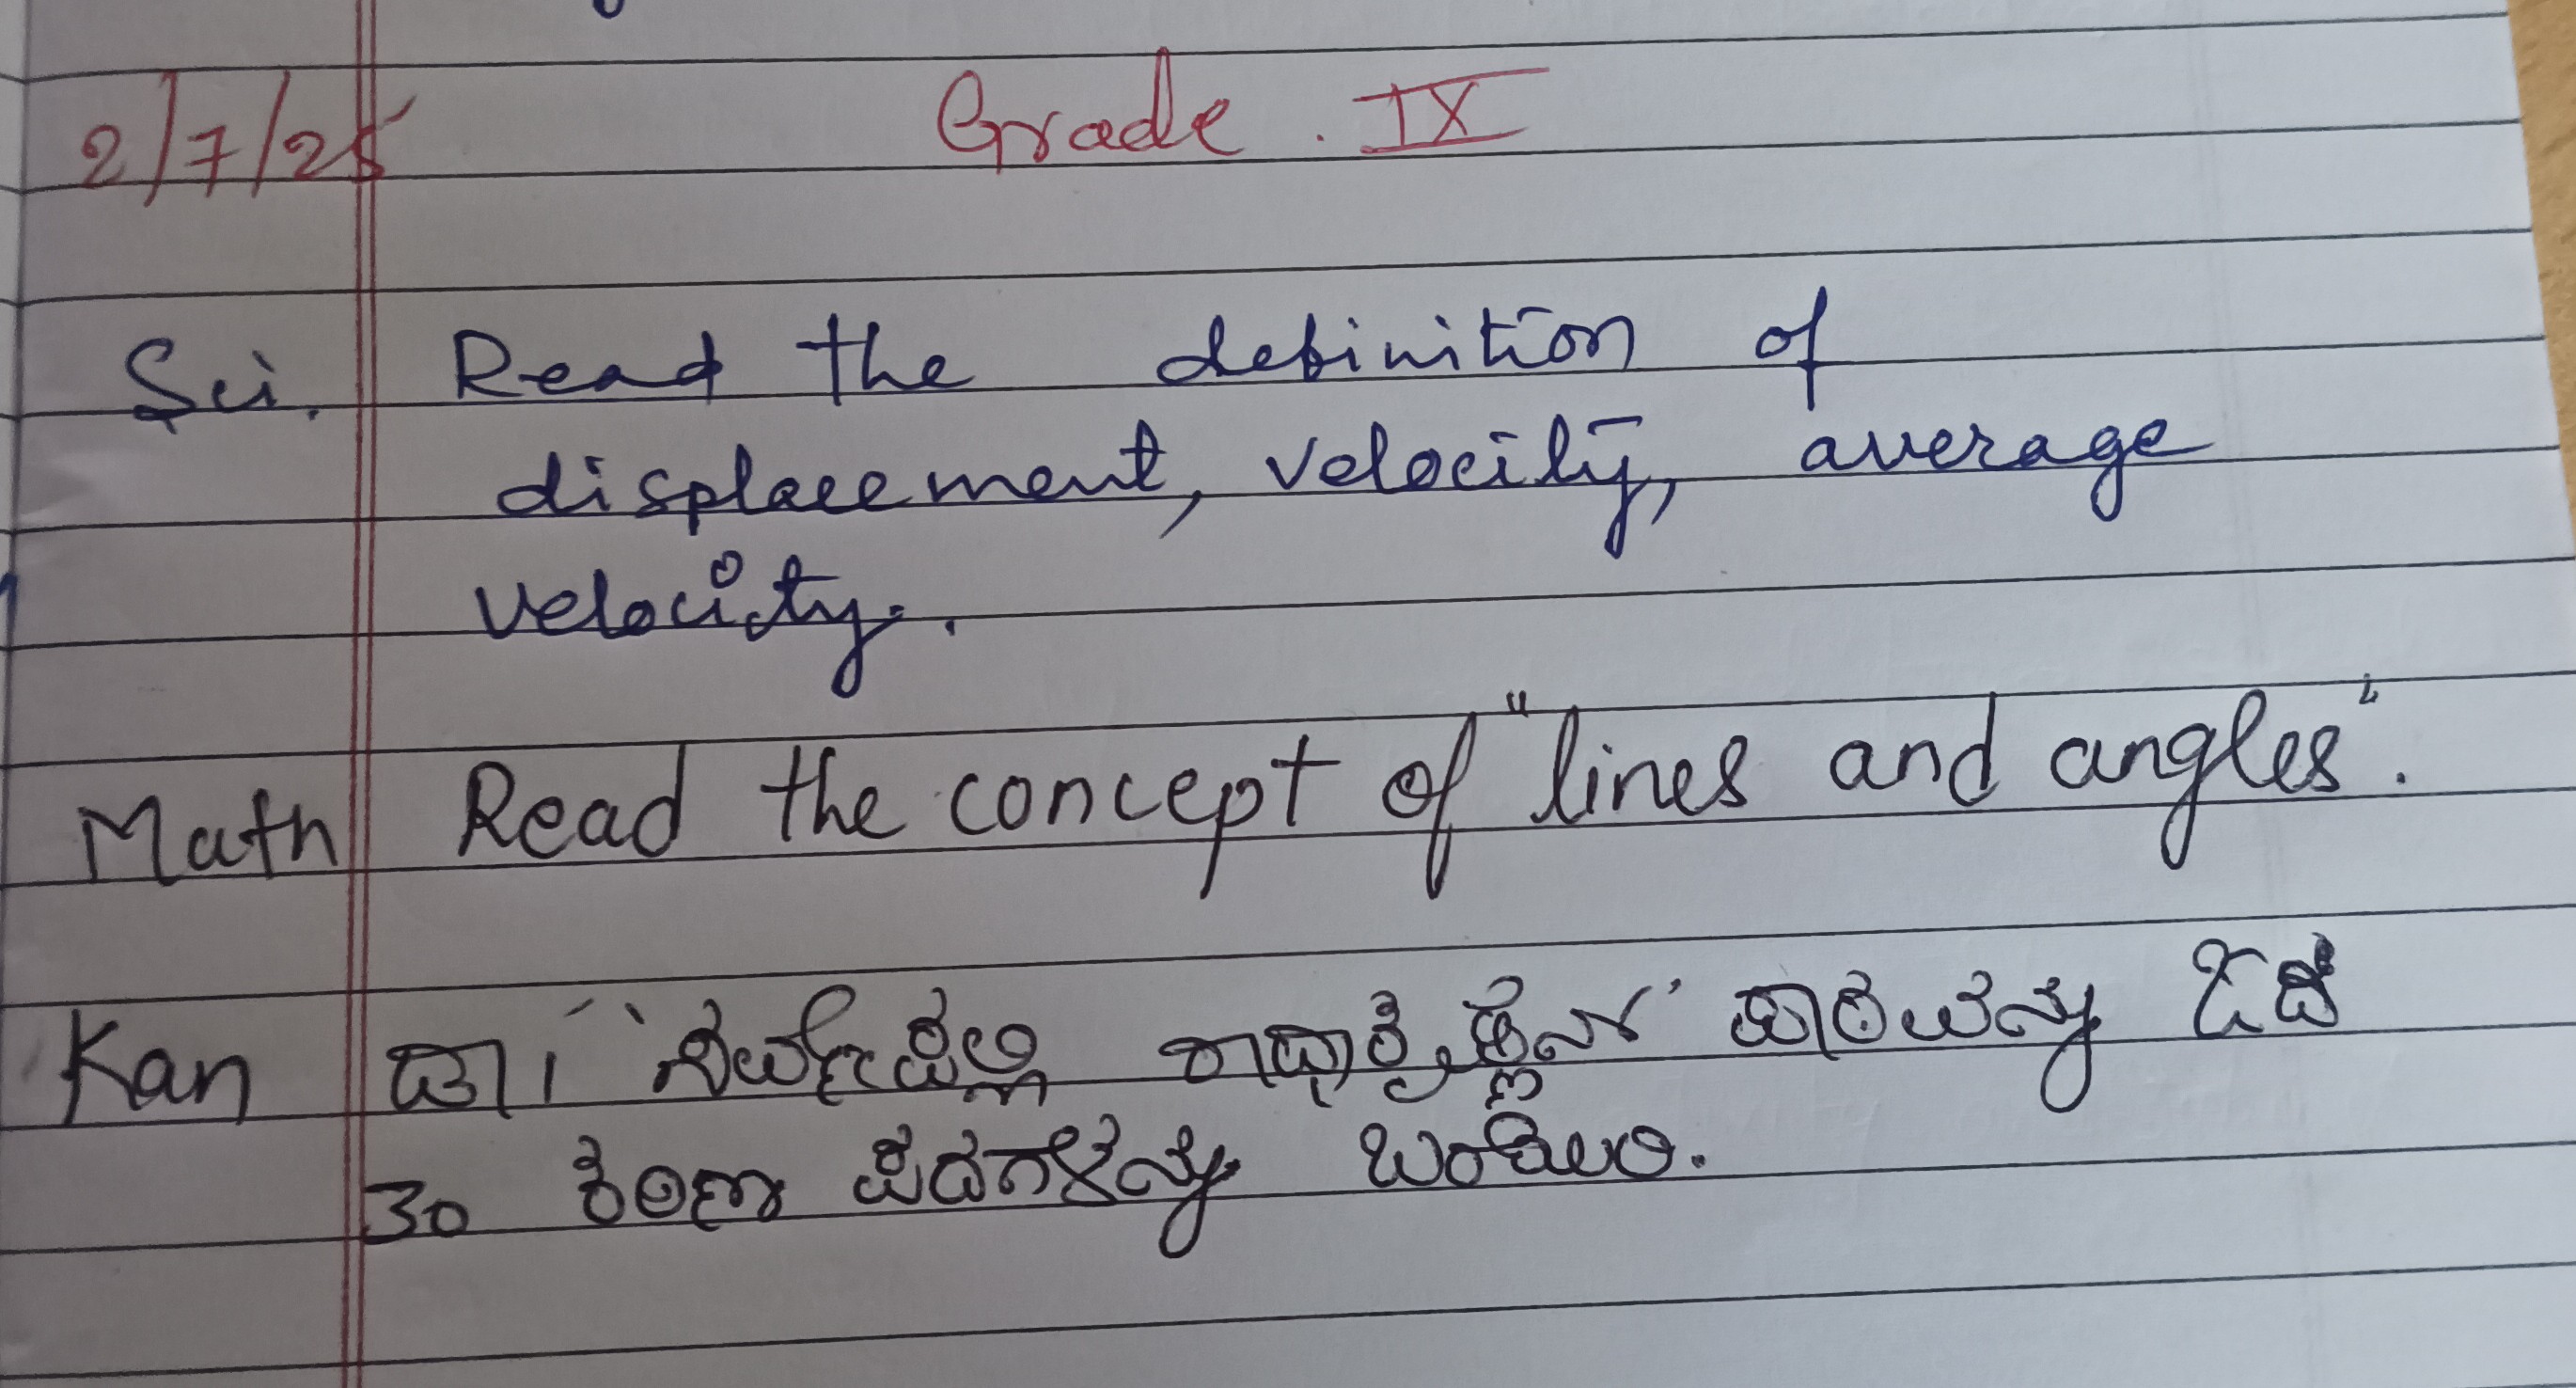 2/7/25 Grade . IX
Sci. Read the definition of
displacement, velocity, average
velocity.
Math Read the concept of "lines and angles".
Kan ಡಾ। ಸರ್ವೇಪಲ್ಲಿ ರಾಧಾಕೃಷ್ಣನ್ ಪಾಠವನ್ನು ಓದಿ
30 ಕಠಿಣ ಪದಗಳನ್ನು ಬರೆಯಿರಿ.